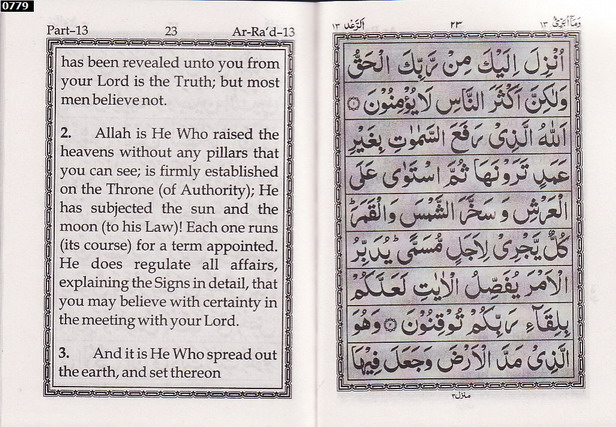 0779
Part–13 23 Ar-Ra'd–13
has been revealed unto you from
your Lord is the Truth; but most
men believe not.
2. Allah is He Who raised the
heavens without any pillars that
you can see; is firmly established
on the Throne (of Authority); He
has subjected the sun and the
moon (to his Law)! Each one runs
(its course) for a term appointed.
He does regulate all affairs,
explaining the Signs in detail, that
you may believe with certainty in
the meeting with your Lord.
3. And it is He Who spread out
the earth, and set thereon
وَمَآ اُبَرِّئُ ١٣ ٢٣ اَلرَّعْد ١٣
اُنْزِلَ اِلَيْكَ مِنْ رَّبِّكَ الْحَقُّ
وَلٰكِنَّ اَكْثَرَ النَّاسِ لَا يُؤْمِنُوْنَ ۝١
اَللّٰهُ الَّذِىْ رَفَعَ السَّمٰوٰتِ بِغَيْرِ
عَمَدٍ تَرَوْنَهَا ثُمَّ اسْتَوٰى عَلَى
الْعَرْشِ وَسَخَّرَ الشَّمْسَ وَالْقَمَرَ ؕ
كُلٌّ يَّجْرِىْ لِاَجَلٍ مُّسَمًّى ؕ يُدَبِّرُ
الْاَمْرَ يُفَصِّلُ الْاٰيٰتِ لَعَلَّكُمْ
بِلِقَآءِ رَبِّكُمْ تُوْقِنُوْنَ ۝٢ وَهُوَ
الَّذِىْ مَدَّ الْاَرْضَ وَجَعَلَ فِيْهَا
منزل ٣